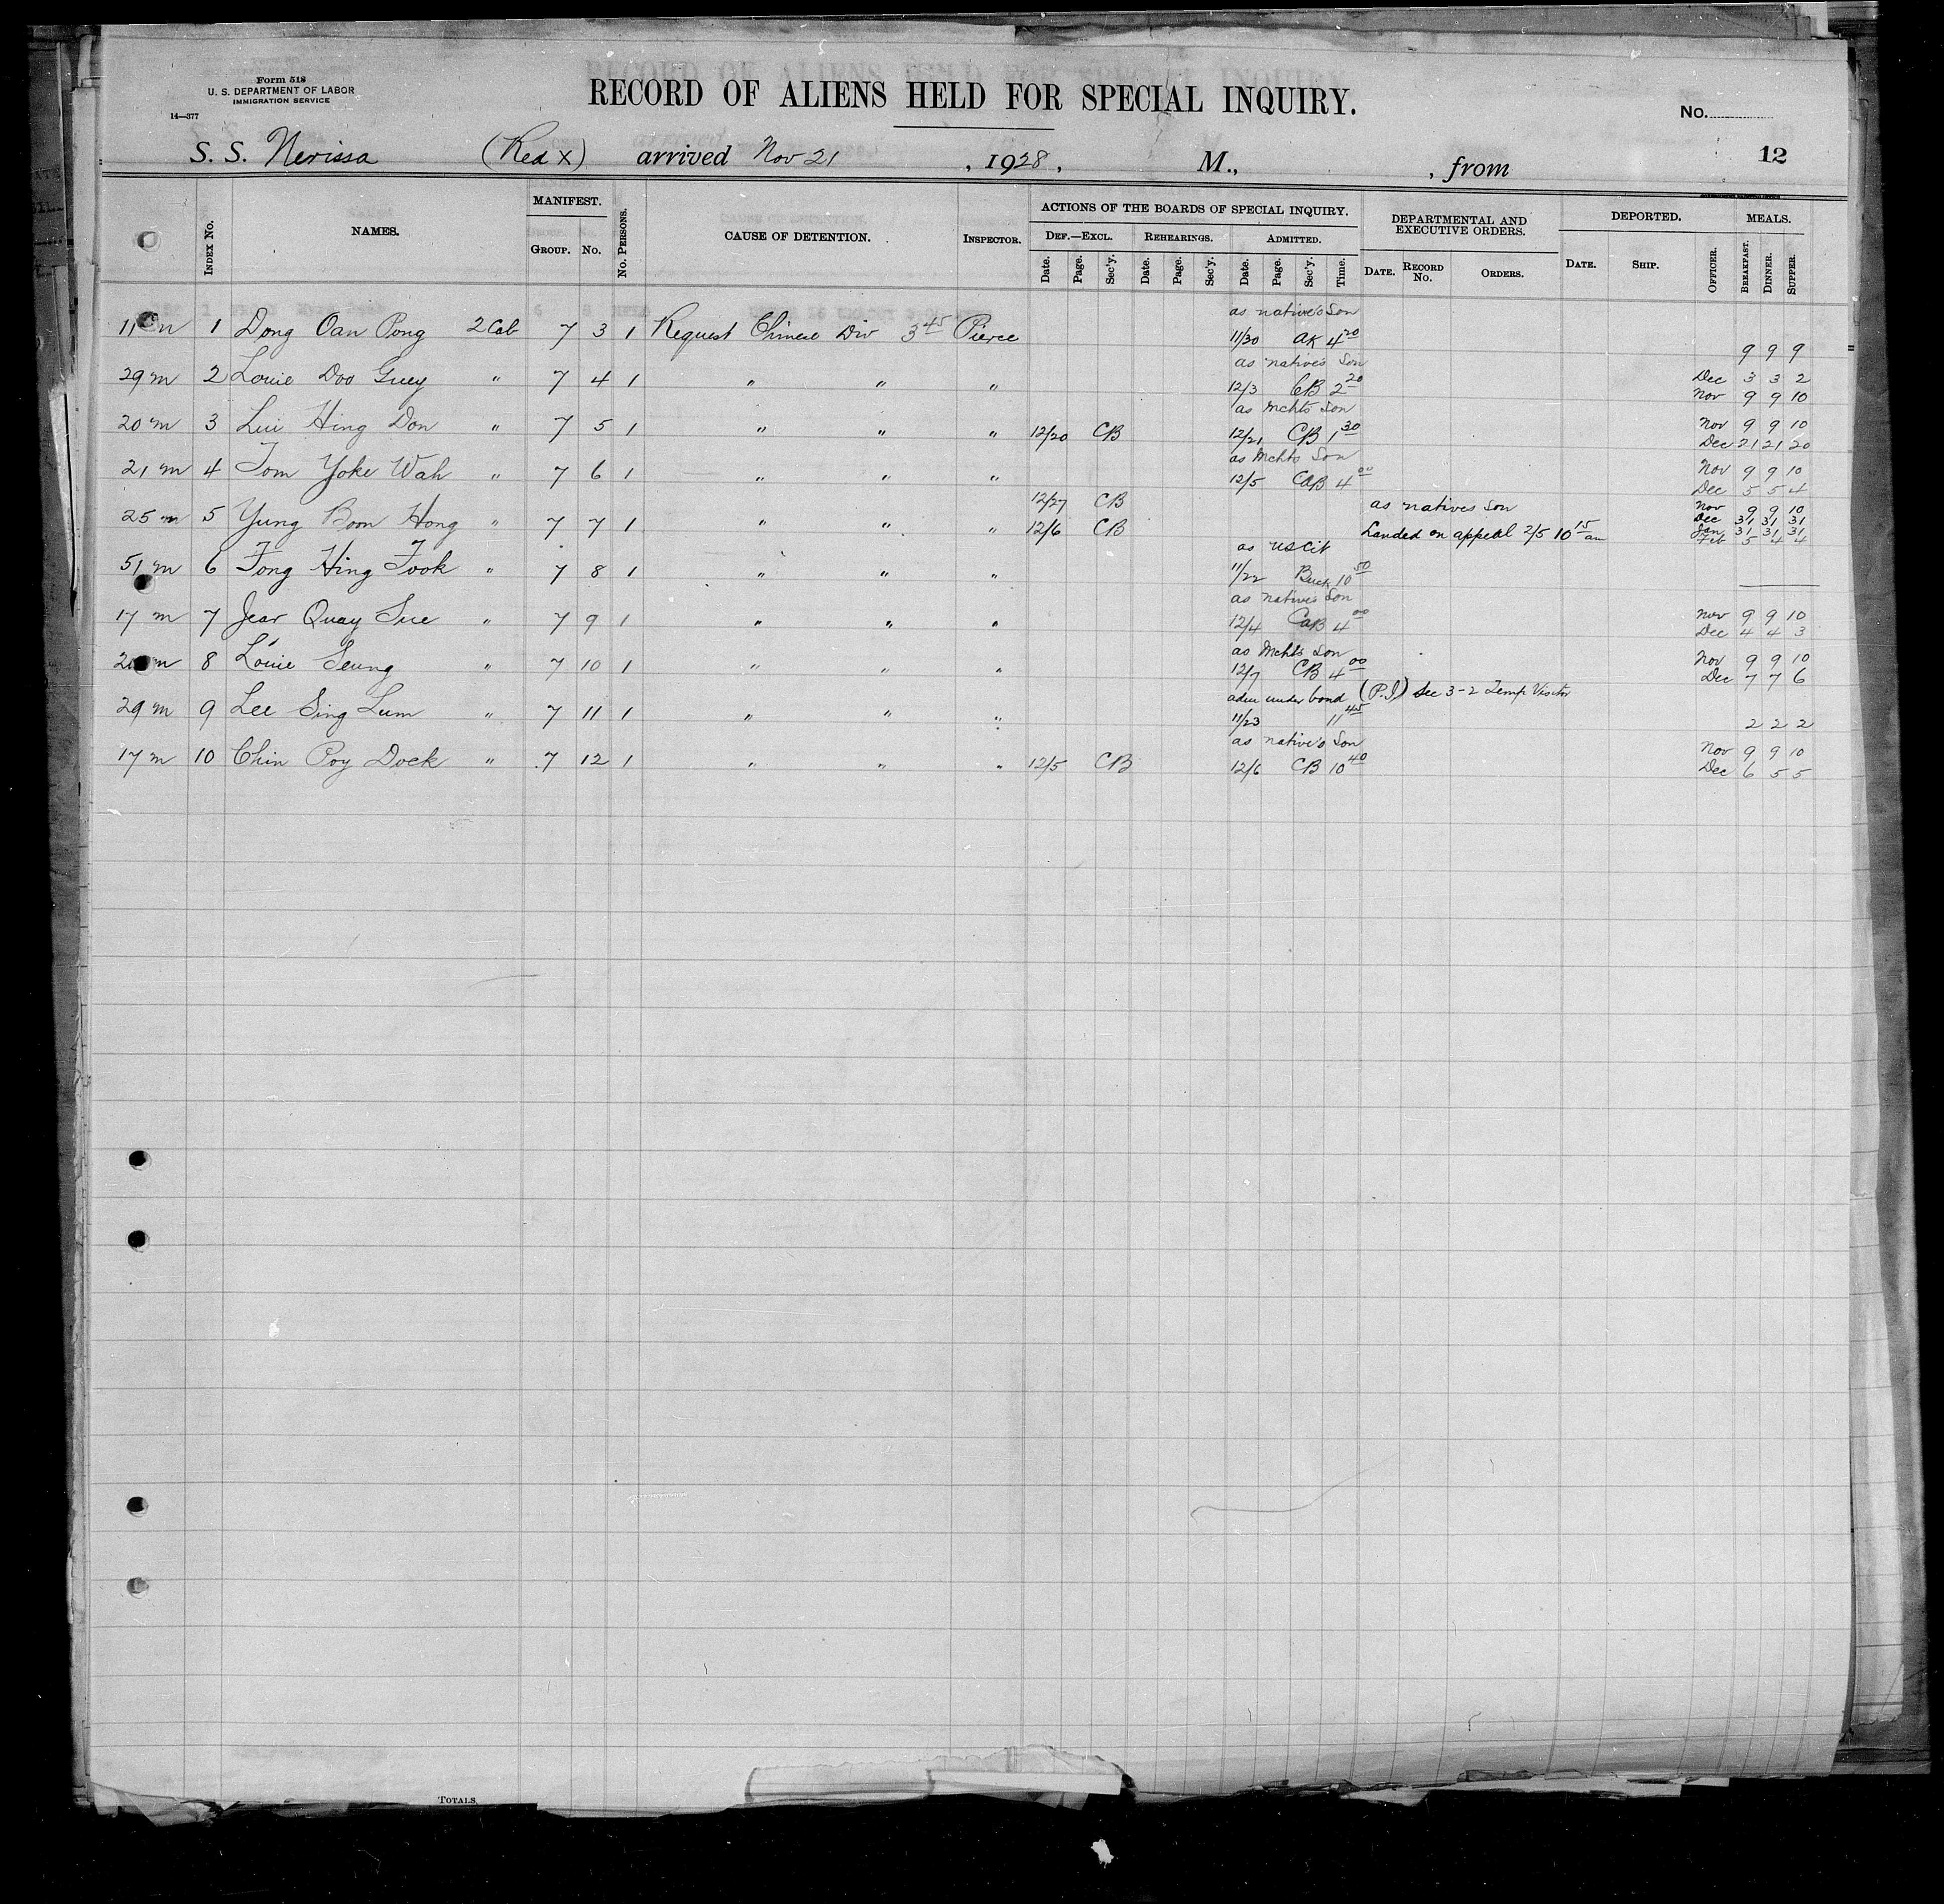 Form 518
U. S. DEPARTMENT OF LABOR
IMMIGRATION SERVICE
14—377
RECORD OF ALIENS HELD FOR SPECIAL INQUIRY.
No.
S. S. Nerissa (Red X) arrived Nov 21, 1928, M., from 12
INDEX No. NAMES. MANIFEST. GROUP. No. No. PERSONS. CAUSE OF DETENTION. INSPECTOR. ACTIONS OF THE BOARDS OF SPECIAL INQUIRY. DEPARTMENTAL AND EXECUTIVE ORDERS. DEPORTED. MEALS.
DEF.—EXCL. REHEARINGS. ADMITTED.
Date. Page. Sec'y. Date. Page. Sec'y. Date. Page. Sec'y. Time. DATE. RECORD No. ORDERS. DATE. SHIP. OFFICER. BREAKFAST. DINNER. SUPPER.
as native's Son
11 m 1 Dong Oan Pong 2 Cab 7 3 1 Request Chinese Div 3 45 Pierce 11/30 AK 4 20
9 9 9
as native's Son
29 m 2 Louie Doo Guey " 7 4 1 " " " 12/3 CB 2 20 Dec 3 3 2
Nov 9 9 10
as Mchts Son
20 m 3 Lui Hing Don " 7 5 1 " " " 12/20 CB 12/21 CB 1 30 Nov 9 9 10
Dec 21 21 20
as Mchts Son
21 m 4 Tom Yoke Wah " 7 6 1 " " " 12/5 CaB 4 00 Nov 9 9 10
Dec 5 5 4
12/27 CB as natives son Nov 9 9 10
25 m 5 Yung Boon Hong " 7 7 1 " " " 12/6 CB Landed on appeal 2/5 10 15 am Dec 31 31 31
Jan 31 31 31
Feb 5 4 4
as US Cit
51 m 6 Fong Hing Fook " 7 8 1 " " " 11/22 Buck 10 50
as natives Son
17 m 7 Jear Quay Sue " 7 9 1 " " " 12/4 CaB 4 00 Nov 9 9 10
Dec 4 4 3
as Mchts Son
m 8 Louie Seung " 7 10 1 " " " 12/7 CB 4 00 Nov 9 9 10
Dec 7 7 6
adm under bond (P.I) Sec 3-2 Temp Visitor
29 m 9 Lee Sing Lum " 7 11 1 " " " 11/23 11 45 2 2 2
as native's Son
17 m 10 Chin Poy Dock " 7 12 1 " " " 12/5 CB 12/6 CB 10 40 Nov 9 9 10
Dec 6 5 5
TOTALS